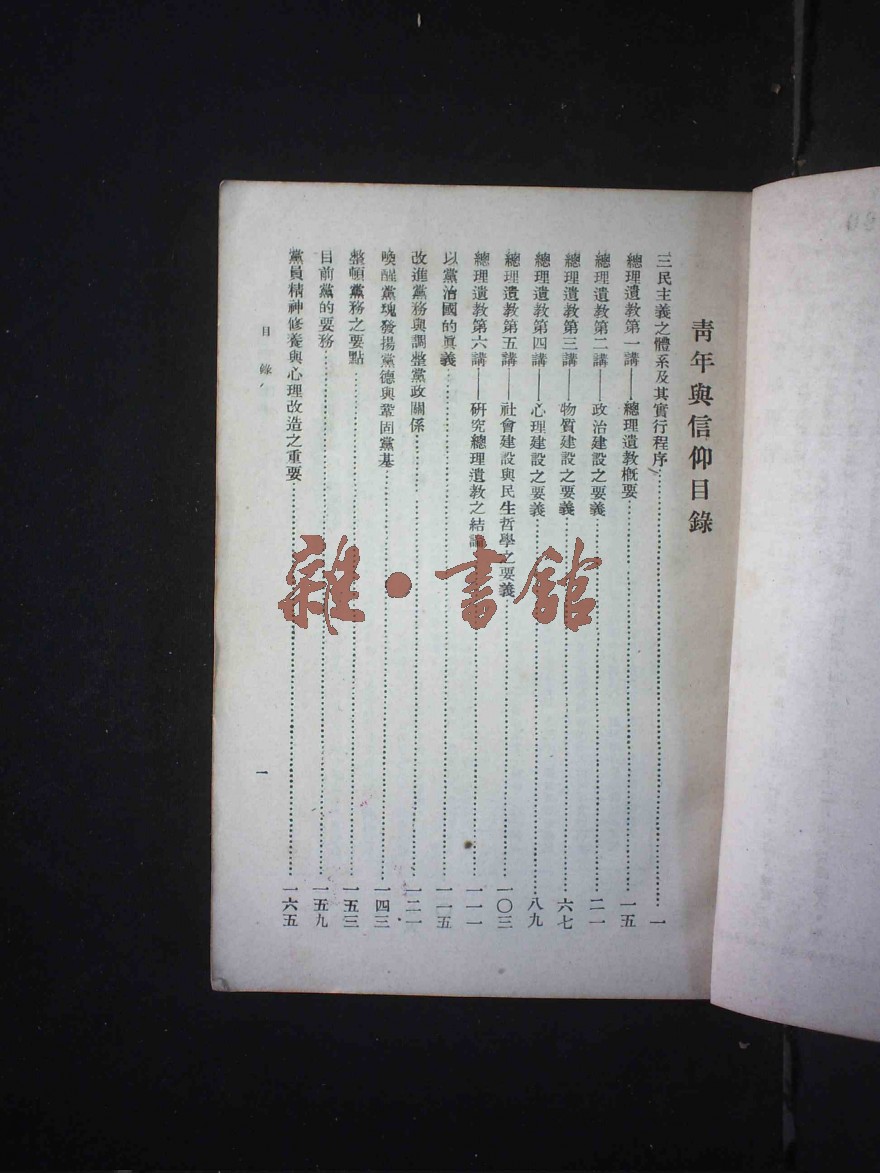 青年與信仰目錄
三民主義之體系及其實行程序…………一
總理遺教第一講——總理遺教概要…………一五
總理遺教第二講——政治建設之要義…………二一
總理遺教第三講——物質建設之要義…………六七
總理遺教第四講——心理建設之要義…………八九
總理遺教第五講——社會建設與民生哲學之要義…………一〇三
總理遺教第六講——研究總理遺教之結論…………一一一
以黨治國的眞義…………一一五
改進黨務與調整黨政關係…………一二一
喚醒黨魂發揚黨德與鞏固黨基…………一四三
整頓黨務之要點…………一五三
目前黨的要務…………一五九
黨員精神修養與心理改造之重要…………一六五
目錄
一
雜·書館